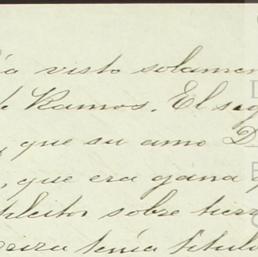 ía visto solamen
de Ramos. El seg
, que su amo D
, que era gana
pleito sobre tier
tenía título